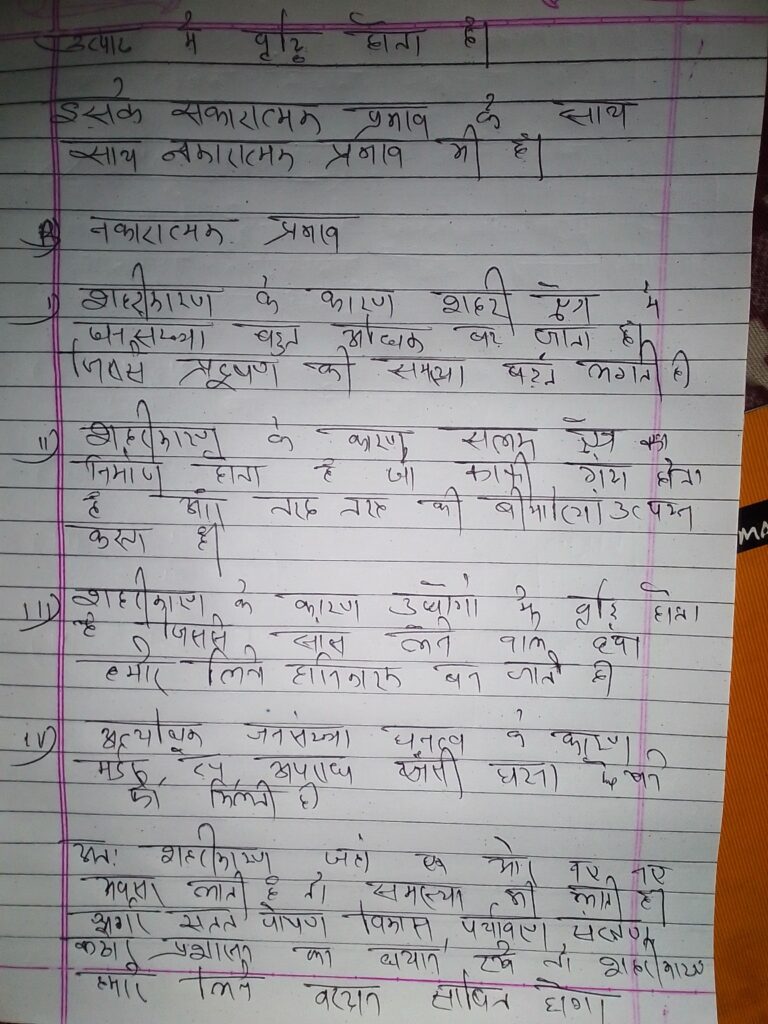 उत्पाद में वृद्धि होता है।
इसके सकारात्मक प्रभाव के साथ
साथ नकारात्मक प्रभाव भी है।
नकारात्मक प्रभाव
i) शहरीकारण के कारण शहरी क्षेत्र में
जनसंख्या बहुत अधिक बढ़ जाता है।
जिससे प्रदूषण की समस्या बढ़ने लगती है।
ii) शहरीकारण के कारण सलम क्षेत्र का
निर्माण होता है जो काफी गंदा होता
है और तरह तरह की बीमारियां उत्पन्न
करता है।
iii) शहरीकारण के कारण उद्योगों में वृद्धि होता
है जिससे सांस लेने वाले हवा
हमारे लिये हानिकारक बन जाती है।
iv) अत्याधिक जनसंख्या घनत्व के कारण
मर्डर, रेप, अपराध जैसी घटना देखने
को मिलती है।
अतः शहरीकारण जहां एक ओर नए नए
अवसर लाती है तो समस्या भी लाती है।
अगर सतत पोषण विकास, पर्यावरण संरक्षण,
प्रशासन का ध्यान रखे तो शहरीकारण
हमारे लिये वरदान साबित होगा।